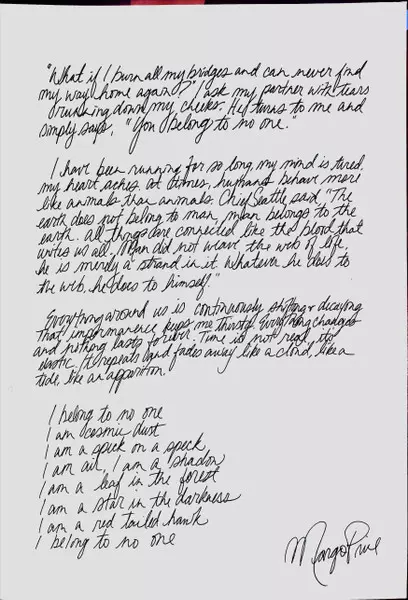 "What if I burn all my bridges and can never find
my way home again?" I ask my partner with tears
running down my cheeks. He turns to me and
simply says, "You belong to no one."
I have been running for so long, my mind is tired,
my heart aches. At times, humans behave more
like animals than animals. Chief Seattle said, "The
earth does not belong to man, man belongs to the
earth. All things are connected like the blood that
unites us all. Man did not weave the web of life,
he is merely a strand in it. Whatever he does to
the web, he does to himself."
Everything around us is continuously shifting + decaying
That impermanence keeps me thirsty. Everything changes
and nothing lasts forever. Time is not real, it's
elastic. It repeats and fades away like a cloud, like a
tide, like an apparition.
I belong to no one
I am cosmic dust
I am a speck on a speck
I am air, I am a shadow
I am a leaf in the forest
I am a star in the darkness
I am a red tailed hawk
I belong to no one
Margo Price